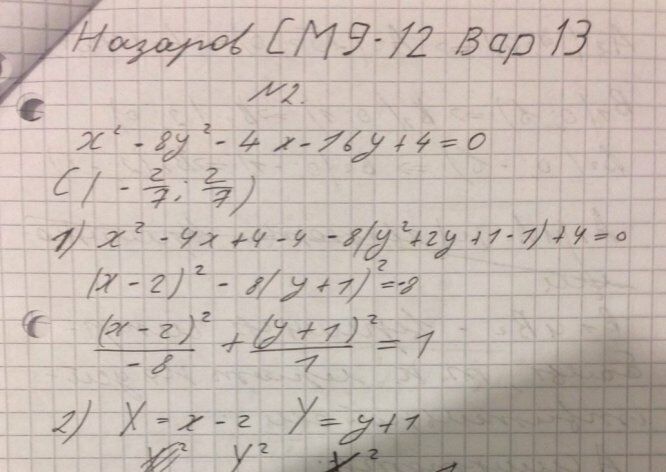 Назаров СМ9-12 Вар 13
N2.
x² - 8y² - 4x - 16y + 4 = 0
C(-2/7; 2/7)
1) x² - 4x + 4 - 4 - 8(y² + 2y + 1 - 1) + 4 = 0
(x - 2)² - 8(y + 1)² = -8
(x - 2)²/-8 + (y + 1)²/1 = 1
2) X = x - 2 Y = y + 1